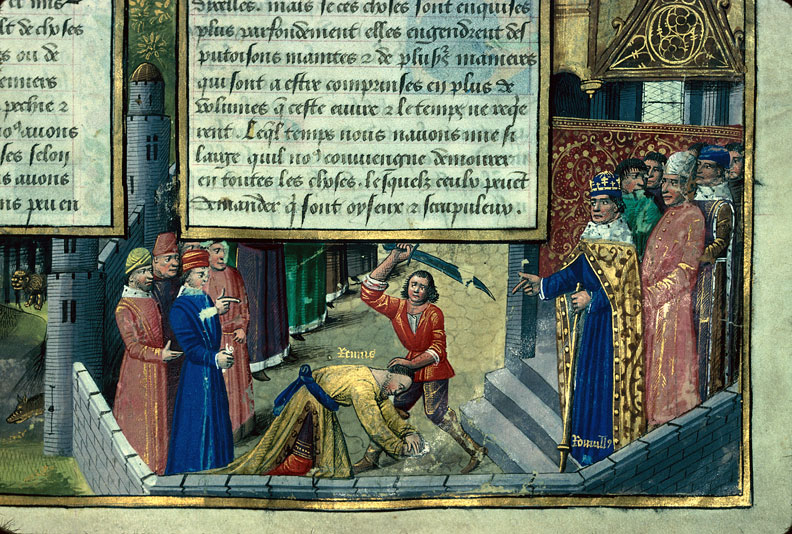 et mis
lt de choses
s ou de
emiers
pechie ⁊
noꝰ auons
ses selon
s auons
ns peu en
mais se ces choses sont enquises
plus parfondement elles engendrent des
putoisons maintes ⁊ de plusꝰ manieres
qui sont a estre comprenses en plus de
volumes q̄ ceste euure ⁊ le temps ne reqͥe
rent. Leql̄ temps nous nauons mie si
large quil noꝰ conuiengne demourer
en toutes les choses. lesquelz ceulx peuēt
demander q̄ sont oyseux ⁊ scrupuleux.
Remus
Romullꝰ